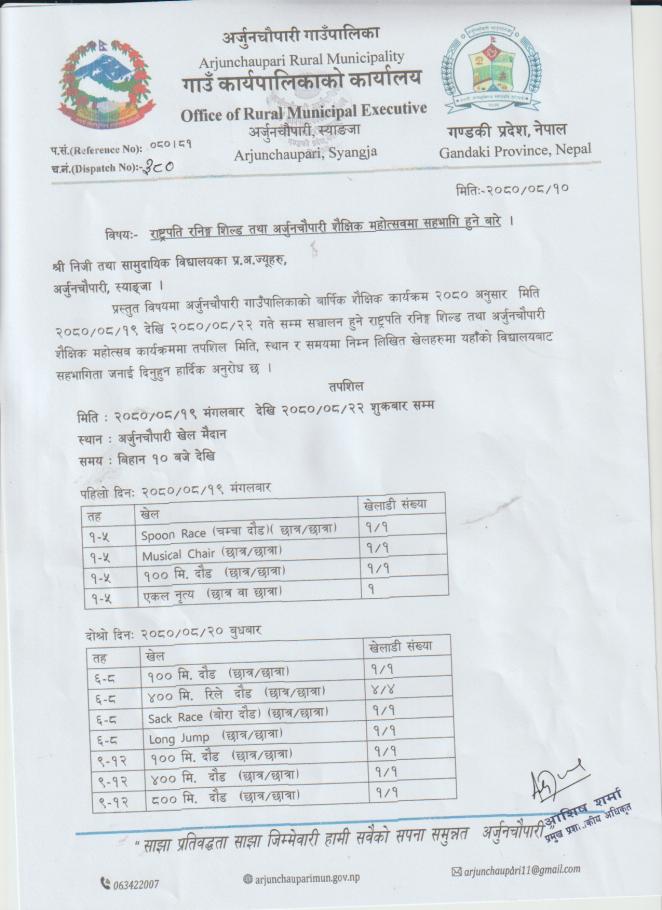 अर्जुनचौपारी गाउँपालिका
Arjunchaupari Rural Municipality
गाउँ कार्यपालिकाको कार्यालय
Office of Rural Municipal Executive
अर्जुनचौपारी, स्याङजा
Arjunchaupari, Syangja
गण्डकी प्रदेश, नेपाल
Gandaki Province, Nepal
प.सं.(Reference No): ०८०।८१
च.नं.(Dispatch No):-३८०
मितिः-२०८०/०८/१०
विषयः- राष्ट्रपति रनिङ्ग शिल्ड तथा अर्जुनचौपारी शैक्षिक महोत्सवमा सहभागि हुने बारे ।
श्री निजी तथा सामुदायिक विद्यालयका प्र.अ.ज्यूहरु,
अर्जुनचौपारी, स्याङ्जा ।
प्रस्तुत विषयमा अर्जुनचौपारी गाउँपालिकाको बार्षिक शैक्षिक कार्यक्रम २०८० अनुसार मिति
२०८०/०८/१९ देखि २०८०/०८/२२ गते सम्म सञ्चालन हुने राष्ट्रपति रनिङ्ग शिल्ड तथा अर्जुनचौपारी
शैक्षिक महोत्सव कार्यक्रममा तपशिल मिति, स्थान र समयमा निम्न लिखित खेलहरुमा यहाँको विद्यालयबाट
सहभागिता जनाई दिनुहुन हार्दिक अनुरोध छ ।
तपशिल
मिति : २०८०/०८/१९ मंगलवार देखि २०८०/०८/२२ शुक्रबार सम्म
स्थान : अर्जुनचौपारी खेल मैदान
समय : बिहान १० बजे देखि
पहिलो दिनः २०८०/०८/१९ मंगलवार
तह खेल खेलाडी संख्या
१-५ Spoon Race (चम्चा दौड)( छात्र/छात्रा) १/१
१-५ Musical Chair (छात्र/छात्रा) १/१
१-५ १०० मि. दौड (छात्र/छात्रा) १/१
१-५ एकल नृत्य (छात्र वा छात्रा) १
दोश्रो दिनः २०८०/०८/२० बुधबार
तह खेल खेलाडी संख्या
६-८ १०० मि. दौड (छात्र/छात्रा) १/१
६-८ ४०० मि. रिले दौड (छात्र/छात्रा) ४/४
६-८ Sack Race (बोरा दौड) (छात्र/छात्रा) १/१
६-८ Long Jump (छात्र/छात्रा) १/१
९-१२ १०० मि. दौड (छात्र/छात्रा) १/१
९-१२ ४०० मि. दौड (छात्र/छात्रा) १/१
९-१२ ८०० मि. दौड (छात्र/छात्रा) १/१
आशिष शर्मा
प्रमुख प्रशा. कीय अधिकृत
"साझा प्रतिवद्धता साझा जिम्मेवारी हामी सवैको सपना समुन्नत अर्जुनचौपारी"
063422007
arjunchauparimun.gov.np
arjunchaupari11@gmail.com